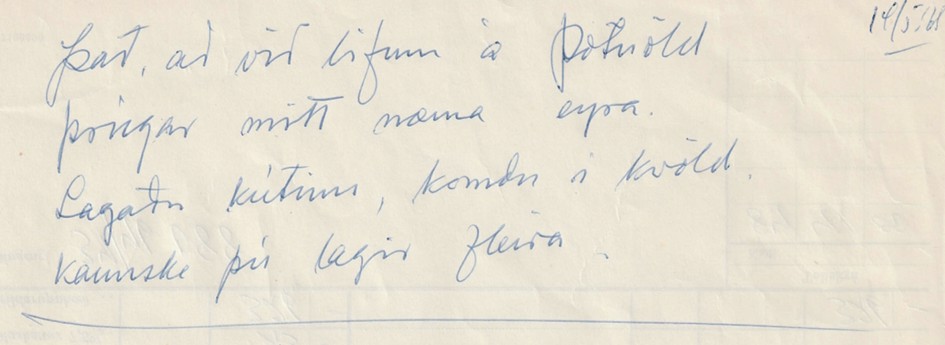 14/5 '68
Það, að við lifum á þotuöld
þvingar mitt næma eyra.
Lagaðu kútinn, komdu í kvöld.
kannske þú lagir fleira.